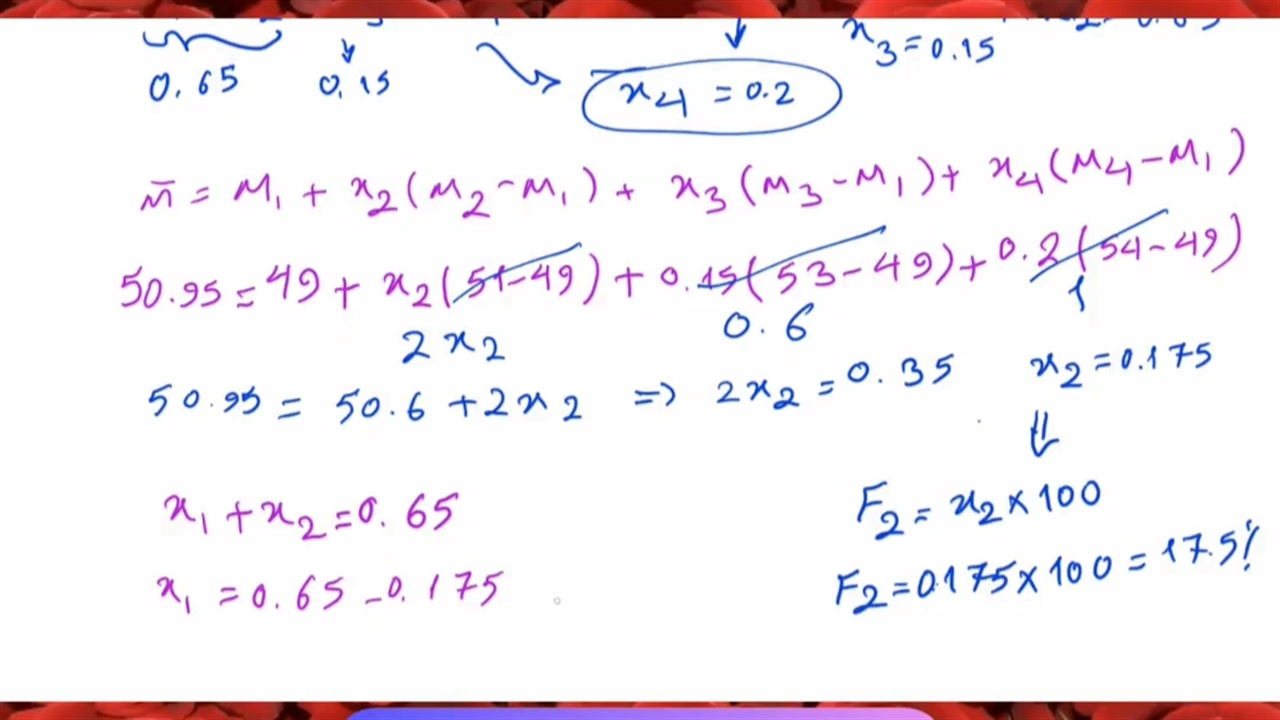 x3 = 0.15
0.65 0.15
x4 = 0.2
m̄ = M1 + x2(M2 - M1) + x3(M3 - M1) + x4(M4 - M1)
50.95 = 49 + x2(51-49) + 0.15(53-49) + 0.2(54-49)
2x2 0.6 1
50.95 = 50.6 + 2x2 => 2x2 = 0.35 x2 = 0.175
⇓
x1 + x2 = 0.65 F2 = x2 × 100
x1 = 0.65 - 0.175 F2 = 0.175 × 100 = 17.5%